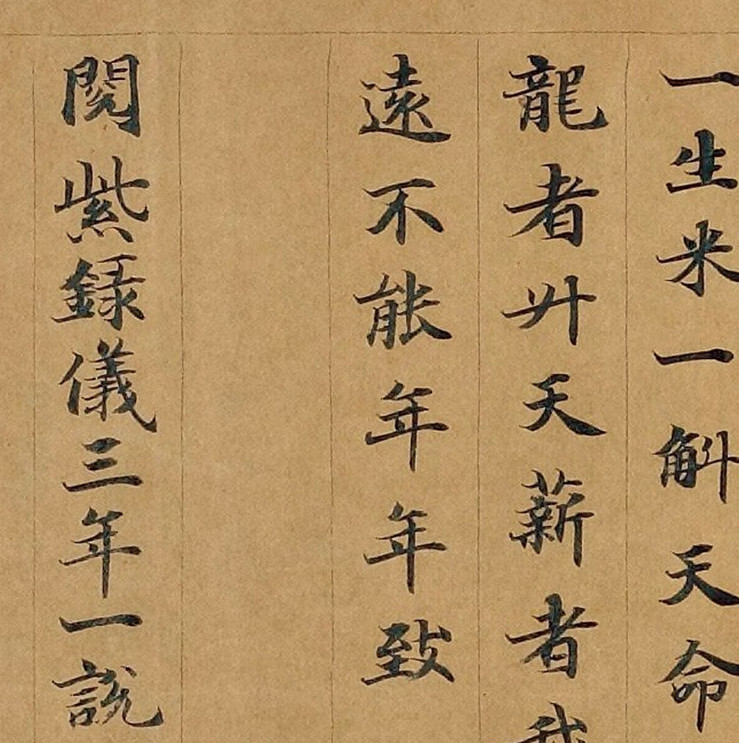 一生米一斛天命
龍者升天薪者
遠不能年年致
閱紫錄儀三年一說